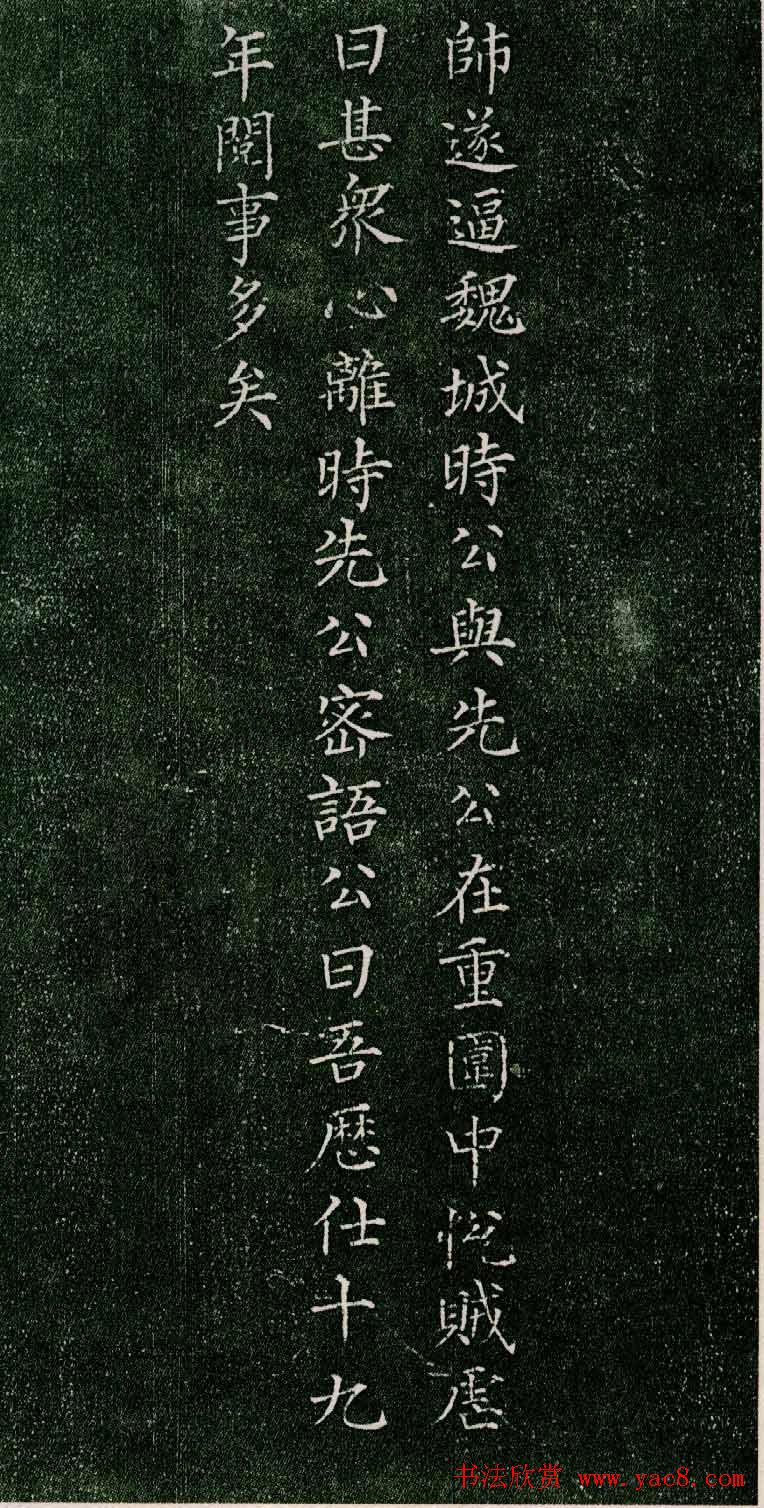 師遂逼魏城時公與先公在重圍中悅賊虐
日甚衆心離時先公密語公曰吾歷仕十九
年閱事多矣
书法欣赏 www.yac8.com